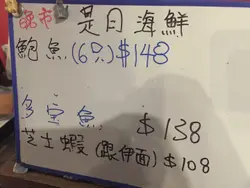 晚市 是日海鮮
鮑魚(6只)$148
多宝魚 $138
芝士蝦(跟伊面)$108